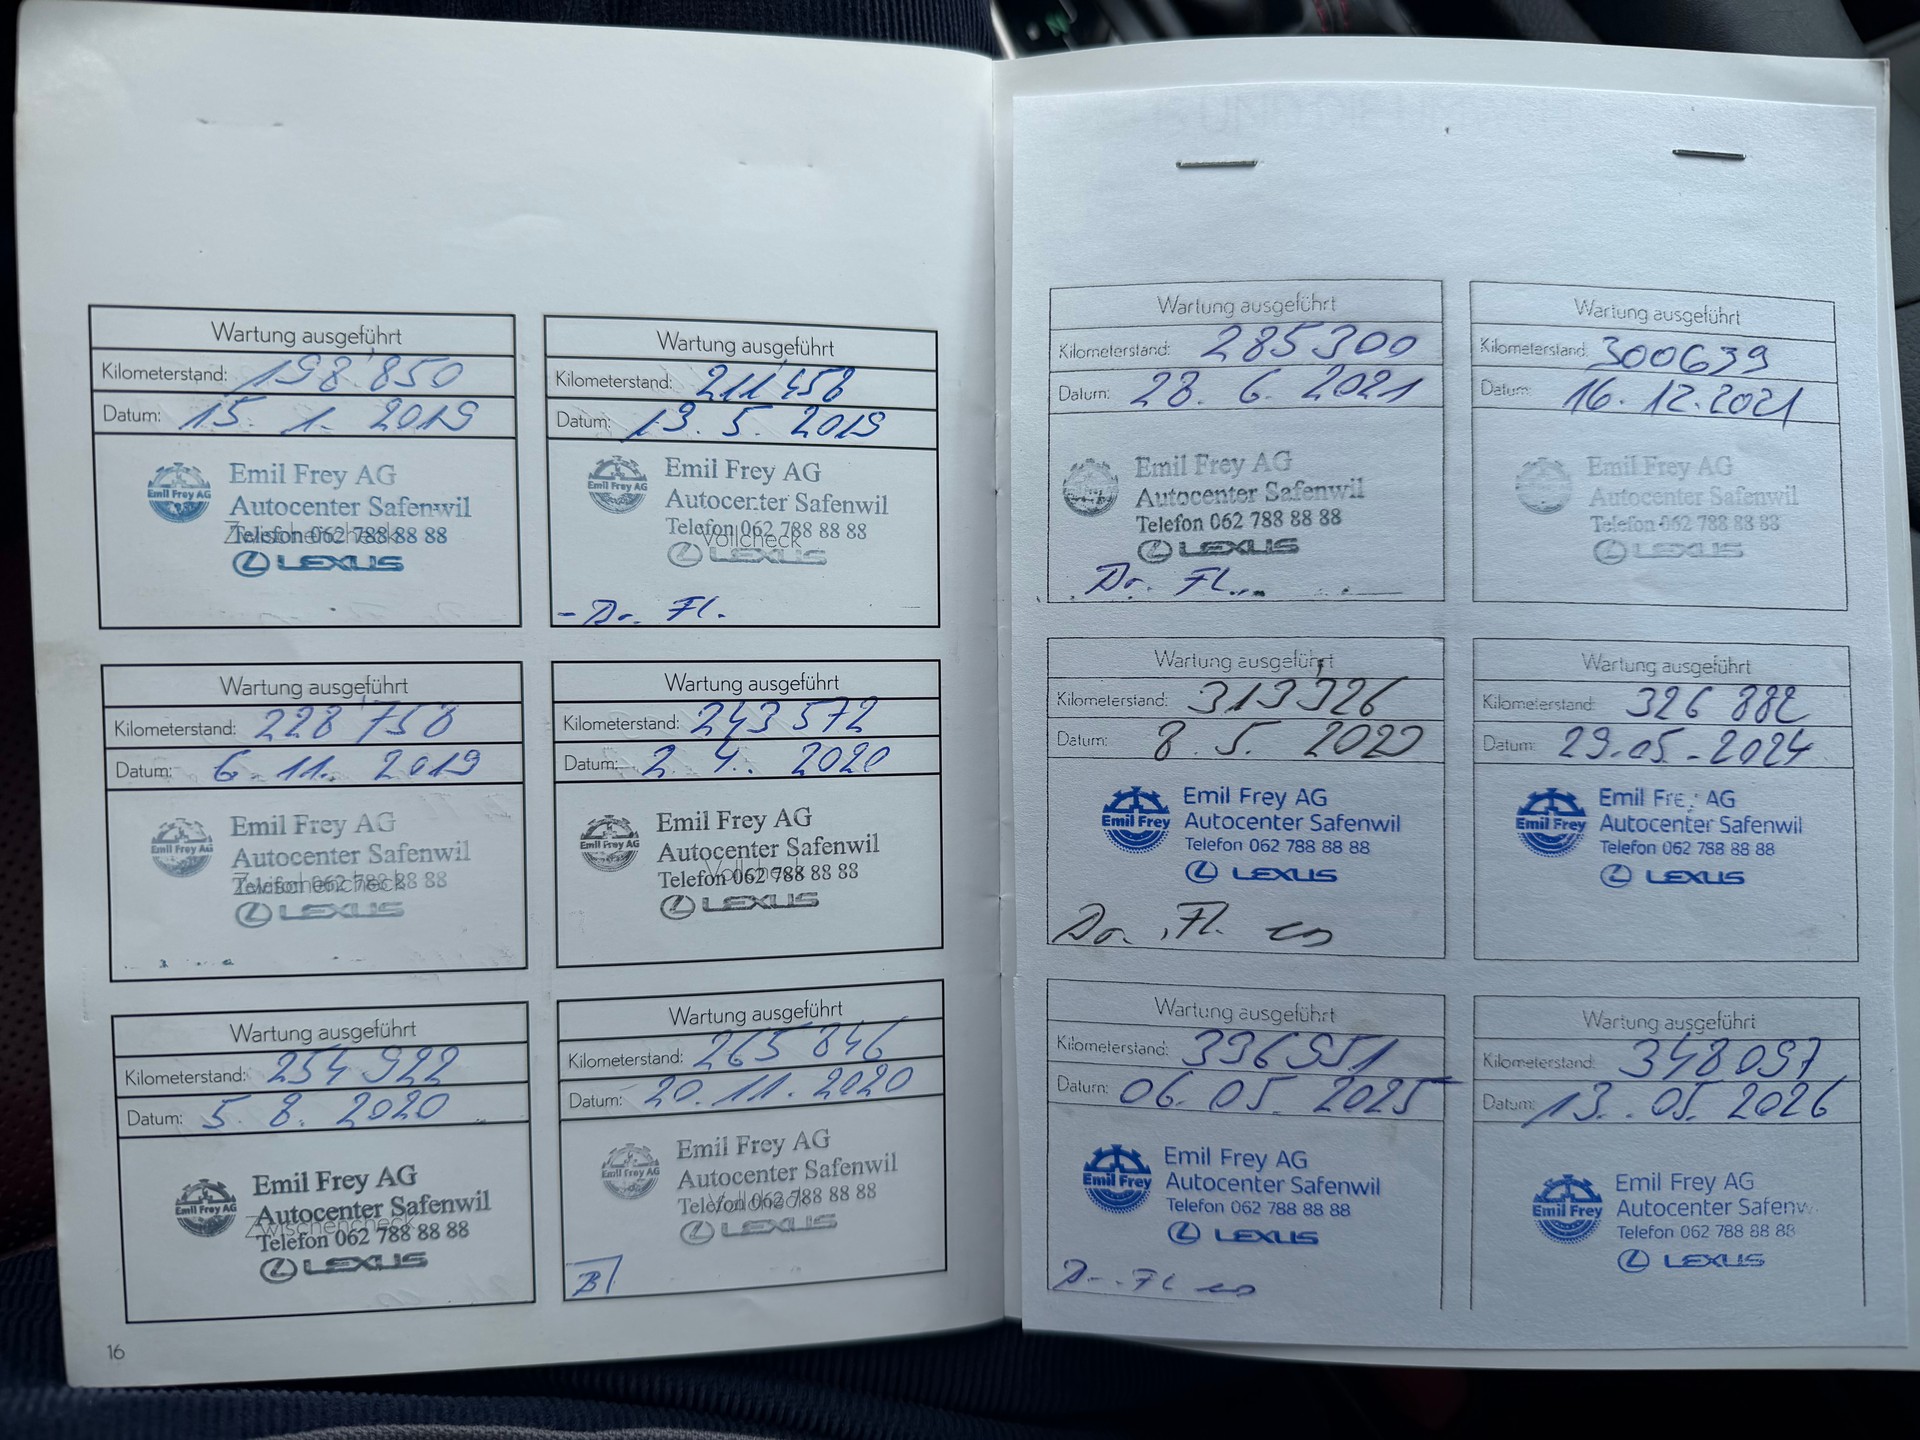 Wartung ausgeführt
Kilometerstand: 198'850
Datum: 15. 1. 2019
Emil Frey AG
Emil Frey AG
Autocenter Safenwil
Zwischencheck
Telefon 062 788 88 88
LEXUS
Wartung ausgeführt
Kilometerstand: 211'458
Datum: 13. 5. 2019
Emil Frey AG
Emil Frey AG
Autocenter Safenwil
Telefon 062 788 88 88
Vollcheck
LEXUS
- Br. Fl.
Wartung ausgeführt
Kilometerstand: 228'758
Datum: 6. 11. 2019
Emil Frey AG
Emil Frey AG
Autocenter Safenwil
Telefon 062 788 88 88
Zwischencheck
LEXUS
Wartung ausgeführt
Kilometerstand: 243 572
Datum: 2. 4. 2020
Emil Frey AG
Emil Frey AG
Autocenter Safenwil
Vollcheck
Telefon 062 788 88 88
LEXUS
Wartung ausgeführt
Kilometerstand: 254 922
Datum: 5. 8. 2020
Emil Frey AG
Emil Frey AG
Autocenter Safenwil
Zwischencheck
Telefon 062 788 88 88
LEXUS
Wartung ausgeführt
Kilometerstand: 265 846
Datum: 20. 11. 2020
Emil Frey AG
Emil Frey AG
Autocenter Safenwil
Telefon 062 788 88 88
Vollcheck
LEXUS
B
16
Wartung ausgeführt
Kilometerstand: 285300
Datum: 28. 6. 2021
Emil Frey AG
Autocenter Safenwil
Telefon 062 788 88 88
LEXUS
Br. Fl.
Wartung ausgeführt
Kilometerstand: 300639
Datum: 16. 12. 2021
Emil Frey AG
Autocenter Safenwil
Telefon 062 788 88 88
LEXUS
Wartung ausgeführt
Kilometerstand:
Datum: 8. 5.
Emil Frey
Emil Frey AG
Autocenter Safenwil
Telefon 062 788 88 88
LEXUS
Br. Fl.
Wartung ausgeführt
Kilometerstand: 326 882
Datum: 29.05.2024
Emil Frey
Emil Frey AG
Autocenter Safenwil
Telefon 062 788 88 88
LEXUS
Wartung ausgeführt
Kilometerstand: 336951
Datum: 06. 05. 2025
Emil Frey
Emil Frey AG
Autocenter Safenwil
Telefon 062 788 88 88
LEXUS
Br. Fl
Wartung ausgeführt
Kilometerstand: 348 097
Datum: 13. 05. 2026
Emil Frey
Emil Frey AG
Autocenter Safenw
Telefon 062 788 88 88
LEXUS